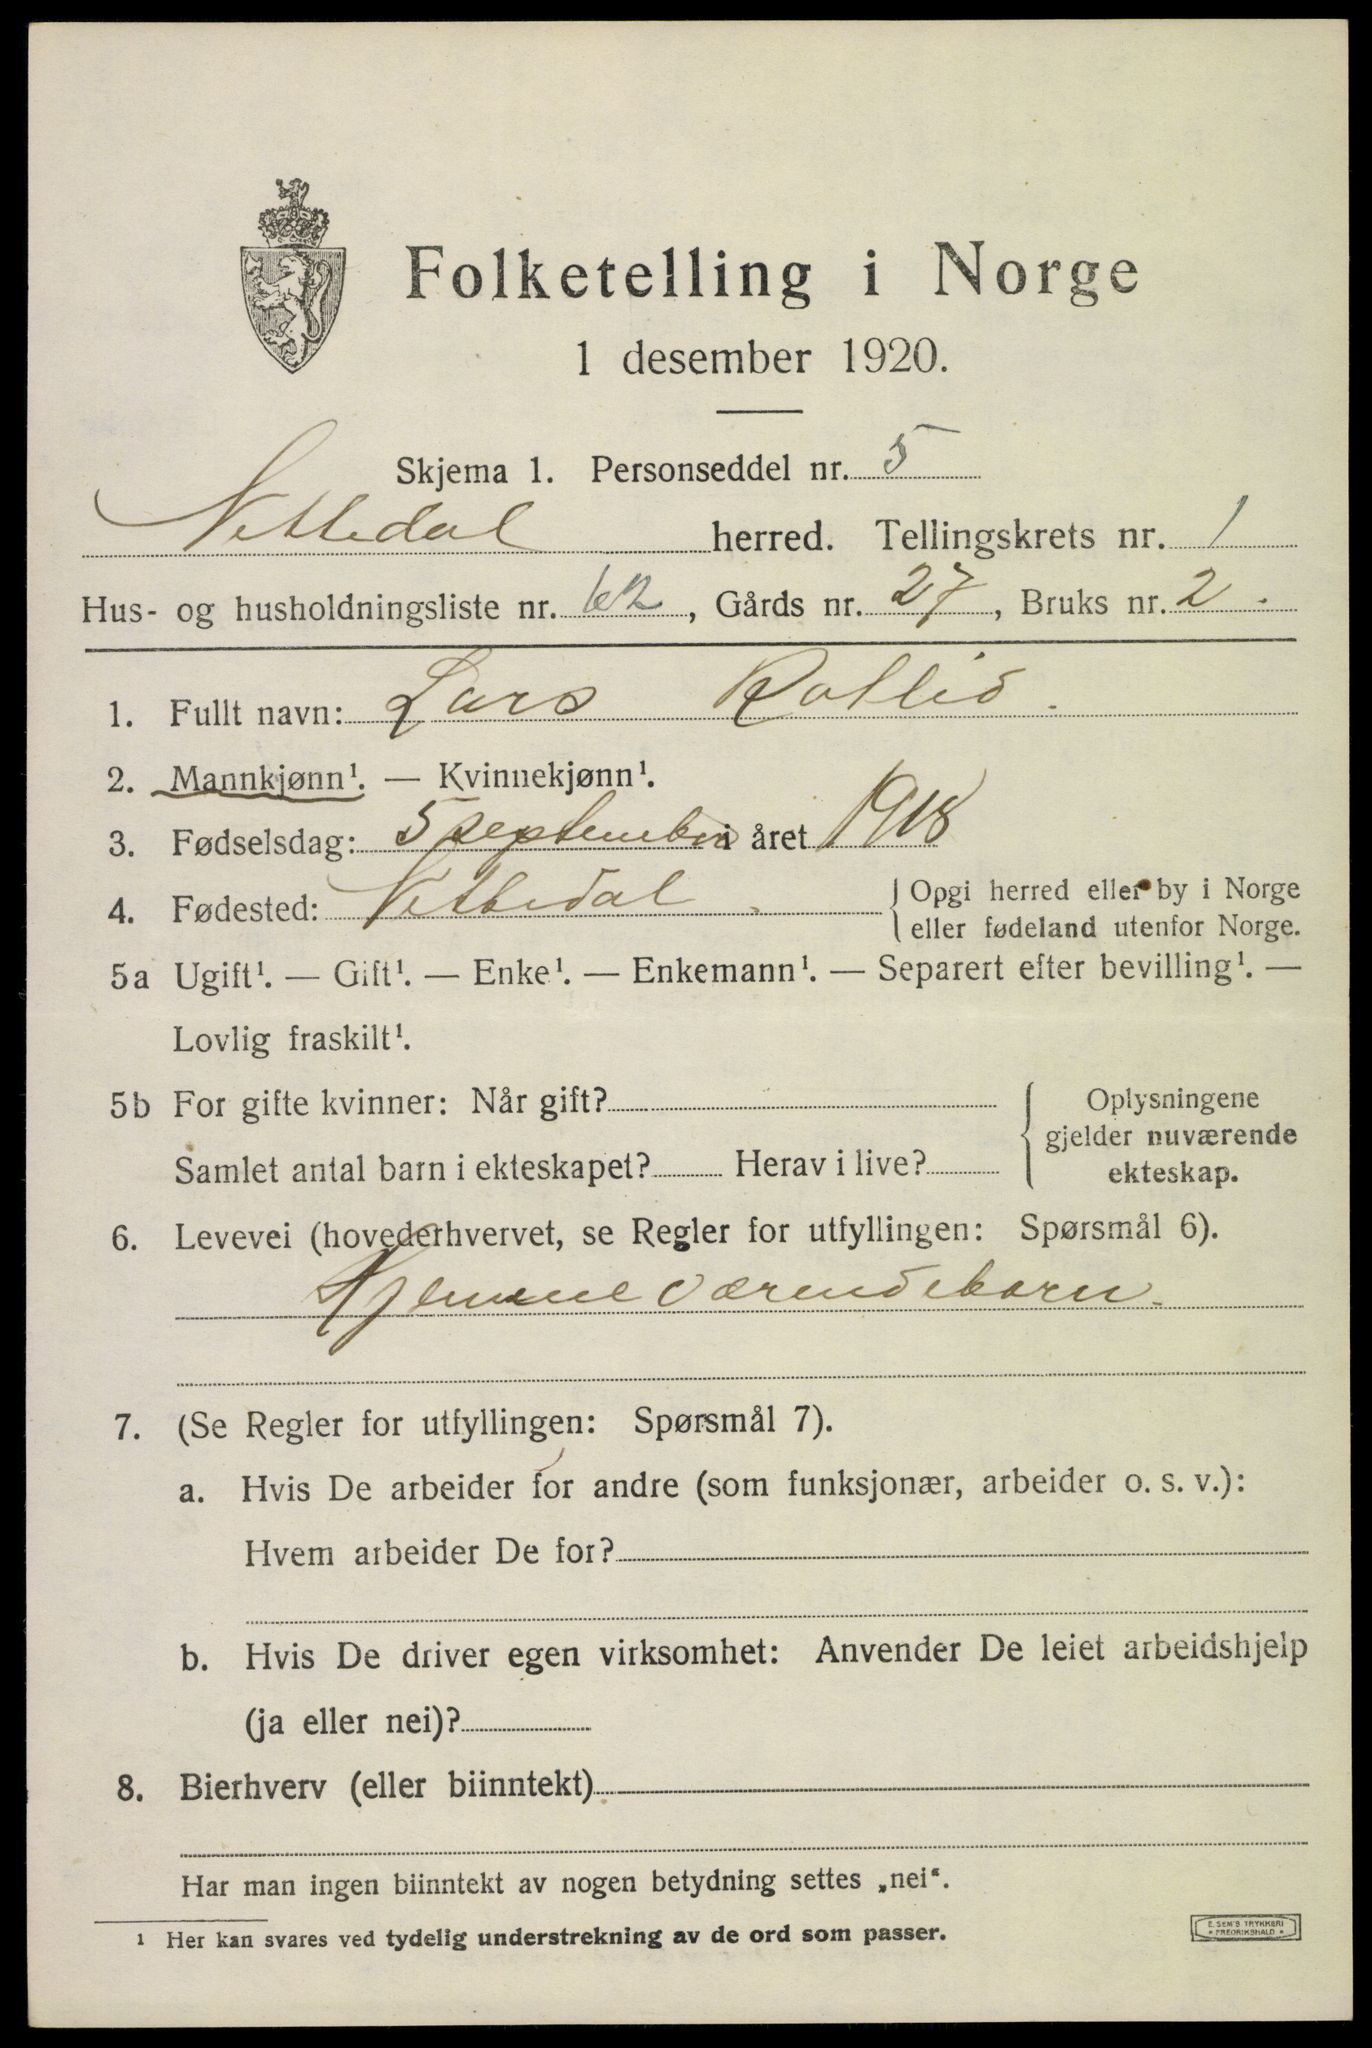 Folketelling i Norge
1 desember 1920.
Skjema 1. Personseddel nr. 5
Nittedal herred. Tellingskrets nr. 1
Hus- og husholdningsliste nr. 62, Gårds nr. 27, Bruks nr. 2.
1. Fullt navn: Lars Rotlid.
2. Mannkjønn¹. — Kvinnekjønn¹.
3. Fødselsdag: 5 september i året 1918
4. Fødested: Nittedal. { Opgi herred eller by i Norge
eller fødeland utenfor Norge.
5a Ugift¹. — Gift¹. — Enke¹. — Enkemann¹. — Separert efter bevilling¹. —
Lovlig fraskilt¹.
5b For gifte kvinner: Når gift? { Oplysningene
gjelder nuværende
Samlet antal barn i ekteskapet? Herav i live?
ekteskap.
6. Levevei (hovederhvervet, se Regler for utfyllingen: Spørsmål 6).
Hjemmeværendebarn.
7. (Se Regler for utfyllingen: Spørsmål 7).
a. Hvis De arbeider for andre (som funksjonær, arbeider o. s. v.):
Hvem arbeider De for?
b. Hvis De driver egen virksomhet: Anvender De leiet arbeidshjelp
(ja eller nei)?
8. Bierhverv (eller biinntekt)
Har man ingen biinntekt av nogen betydning settes „nei“.
¹ Her kan svares ved tydelig understrekning av de ord som passer.
E. SEM'S TRYKKERI
• FREDRIKSHALD •